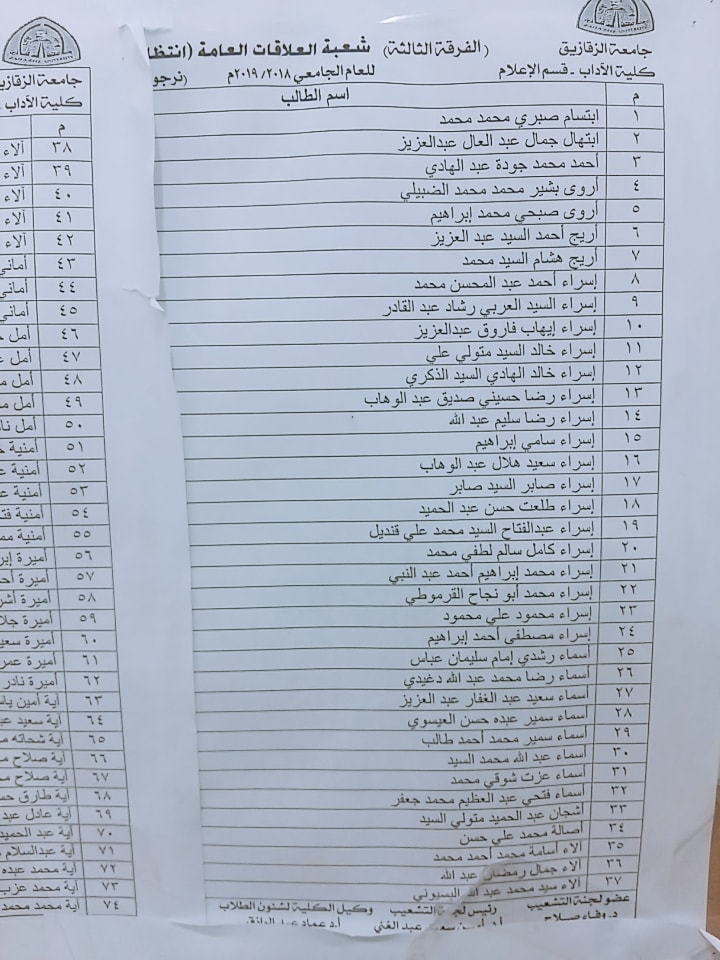 جامعة الزقازيق
كلية الآداب - قسم الإعلام
(الفرقة الثالثة) شعبة العلاقات العامة (انتظا
للعام الجامعي ٢٠١٨/ ٢٠١٩م (نرجو
م اسم الطالب
١ ابتسام صبري محمد محمد
٢ ابتهال جمال عبد العال عبدالعزيز
٣ أحمد محمد جودة عبد الهادي
٤ أروى بشير محمد محمد الضبيلي
٥ أروى صبحي محمد إبراهيم
٦ أريج أحمد السيد عبد العزيز
٧ أريج هشام السيد محمد
٨ إسراء أحمد عبد المحسن محمد
٩ إسراء السيد العربي رشاد عبد القادر
١٠ إسراء إيهاب فاروق عبدالعزيز
١١ إسراء خالد السيد متولي علي
١٢ إسراء خالد الهادي السيد الذكري
١٣ إسراء رضا حسيني صديق عبد الوهاب
١٤ إسراء رضا سليم عبد الله
١٥ إسراء سامي إبراهيم
١٦ إسراء سعيد هلال عبد الوهاب
١٧ إسراء صابر السيد صابر
١٨ إسراء طلعت حسن عبد الحميد
١٩ إسراء عبدالفتاح السيد محمد علي قنديل
٢٠ إسراء كامل سالم لطفي محمد
٢١ إسراء محمد إبراهيم أحمد عبد النبي
٢٢ إسراء محمد أبو نجاح القرموطي
٢٣ إسراء محمود علي محمود
٢٤ إسراء مصطفى أحمد إبراهيم
٢٥ أسماء رشدي إمام سليمان عباس
٢٦ أسماء رضا محمد عبد الله دغيدي
٢٧ أسماء سعيد عبد الغفار عبد العزيز
٢٨ أسماء سمير عبده حسن العيسوي
٢٩ أسماء سمير محمد أحمد طالب
٣٠ أسماء عبد الله محمد السيد
٣١ أسماء عزت شوقي محمد
٣٢ أسماء فتحي عبد العظيم محمد جعفر
٣٣ أشجان عبد الحميد متولي السيد
٣٤ أصالة محمد علي حسن
٣٥ آلاء أسامة محمد أحمد محمد
٣٦ آلاء جمال رمضان عبد الله
٣٧ آلاء سيد محمد عبد الله البسيوني
عضو لجنة التشعيب رئيس لجنة التشعيب وكيل الكلية لشئون الطلاب
د. وفاء صلاح سعيد عبد الغني أ.د عماد عبد الرازق
جامعة الزقازيق
كلية الآداب -
م
٣٨ آلاء
٣٩ آلاء
٤٠ آلاء
٤١ آلاء
٤٢ آلاء
٤٣ أماني
٤٤ أماني
٤٥ أماني
٤٦ أمل
٤٧ أمل
٤٨ أمل
٤٩ أمل
٥٠ أمل
٥١ أمنية
٥٢ أمنية
٥٣ أمنية
٥٤ أمنية
٥٥ أمنية
٥٦ أميرة
٥٧ أميرة
٥٨ أميرة
٥٩ أميرة
٦٠ أميرة
٦١ أميرة
٦٢ أميرة نادر
٦٣ آية أمين
٦٤ آية سعيد
٦٥ آية شحاته
٦٦ آية صلاح
٦٧ آية صلاح
٦٨ آية طارق
٦٩ آية عادل عبد
٧٠ آية عبد الحميد
٧١ آية عبدالسلام
٧٢ آية محمد عبده
٧٣ آية محمد عزب
٧٤ آية محمد محمد